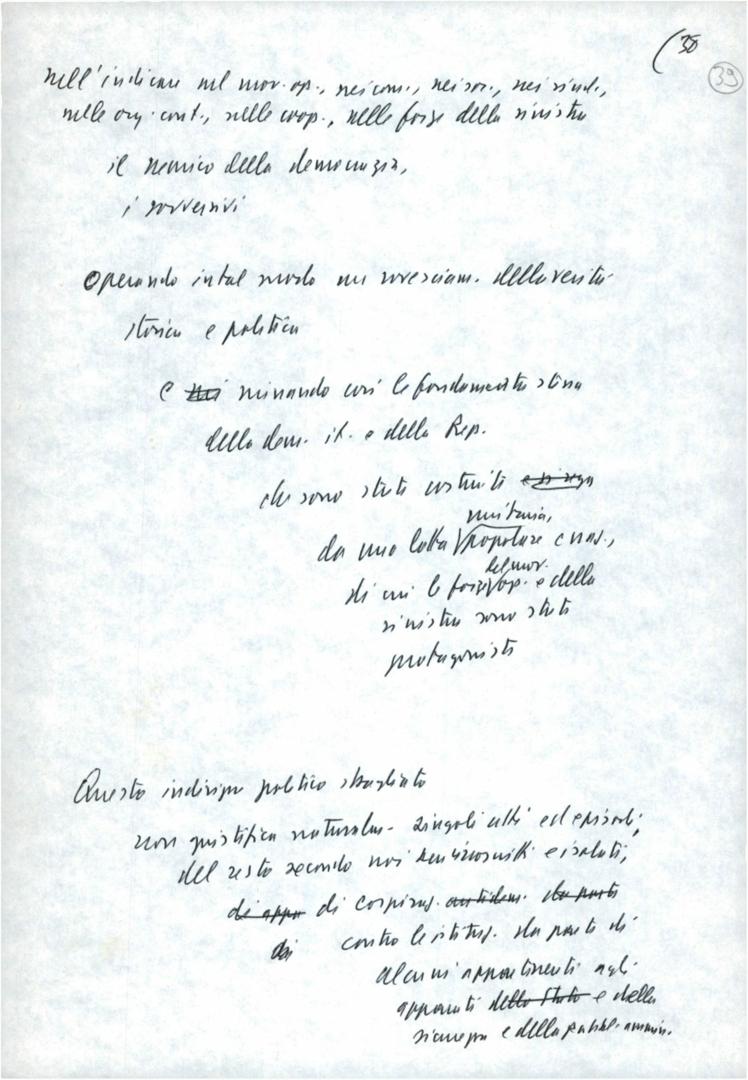 (38
39
nell'indicare nel mov. op., nei com., nei soc., nei sind.,
nelle org. cont., nelle coop., nelle forze della sinistra
il nemico della democrazia,
i sovversivi
Operando in tal modo un rovesciam. della verità
storica e politica
e mi minando così le fondamenta stesse
della dem. it. e della Rep.
che sono state costruite
unitaria,
da una lotta popolare e naz.,
del mov.
di cui le forze op. e della
sinistra sono state
protagoniste
Questo indirizzo politico sbagliato
non giustifica naturalm. singoli atti ed episodi,
del resto secondo noi e isolati,
di appa di cospiraz. antidem. da parte
di contro le istituz. da parte di
alcuni appartenenti agli
apparati dello Stato e della
sicurezza e della pubbl. ammin.